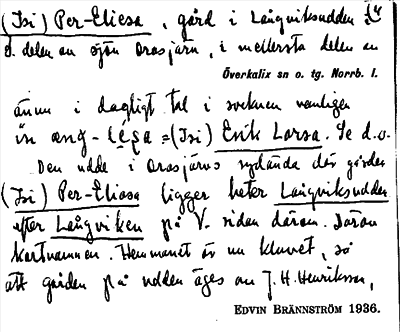 (Isi) Per-Eliesa, gård i Långviksudden i
d. delen av sjön Orasjärv, i mellersta delen av
Överkalix sn o. tg. Norrb. l.
ännu i dagligt tal i socknen vanligen
än = (Isi) Erik Larsa. Se d.o.
Den udde i Orasjärvs sydända där gården
(Isi) Per-Eliasa ligger heter Långviksudden
efter Långviken på V. sidan därom. Därom
kartnamnen. Hemmanet är nu kluvet, så
att gården på udden äges av J. H. Henriksson,
EDVIN BRÄNNSTRÖM 1936.